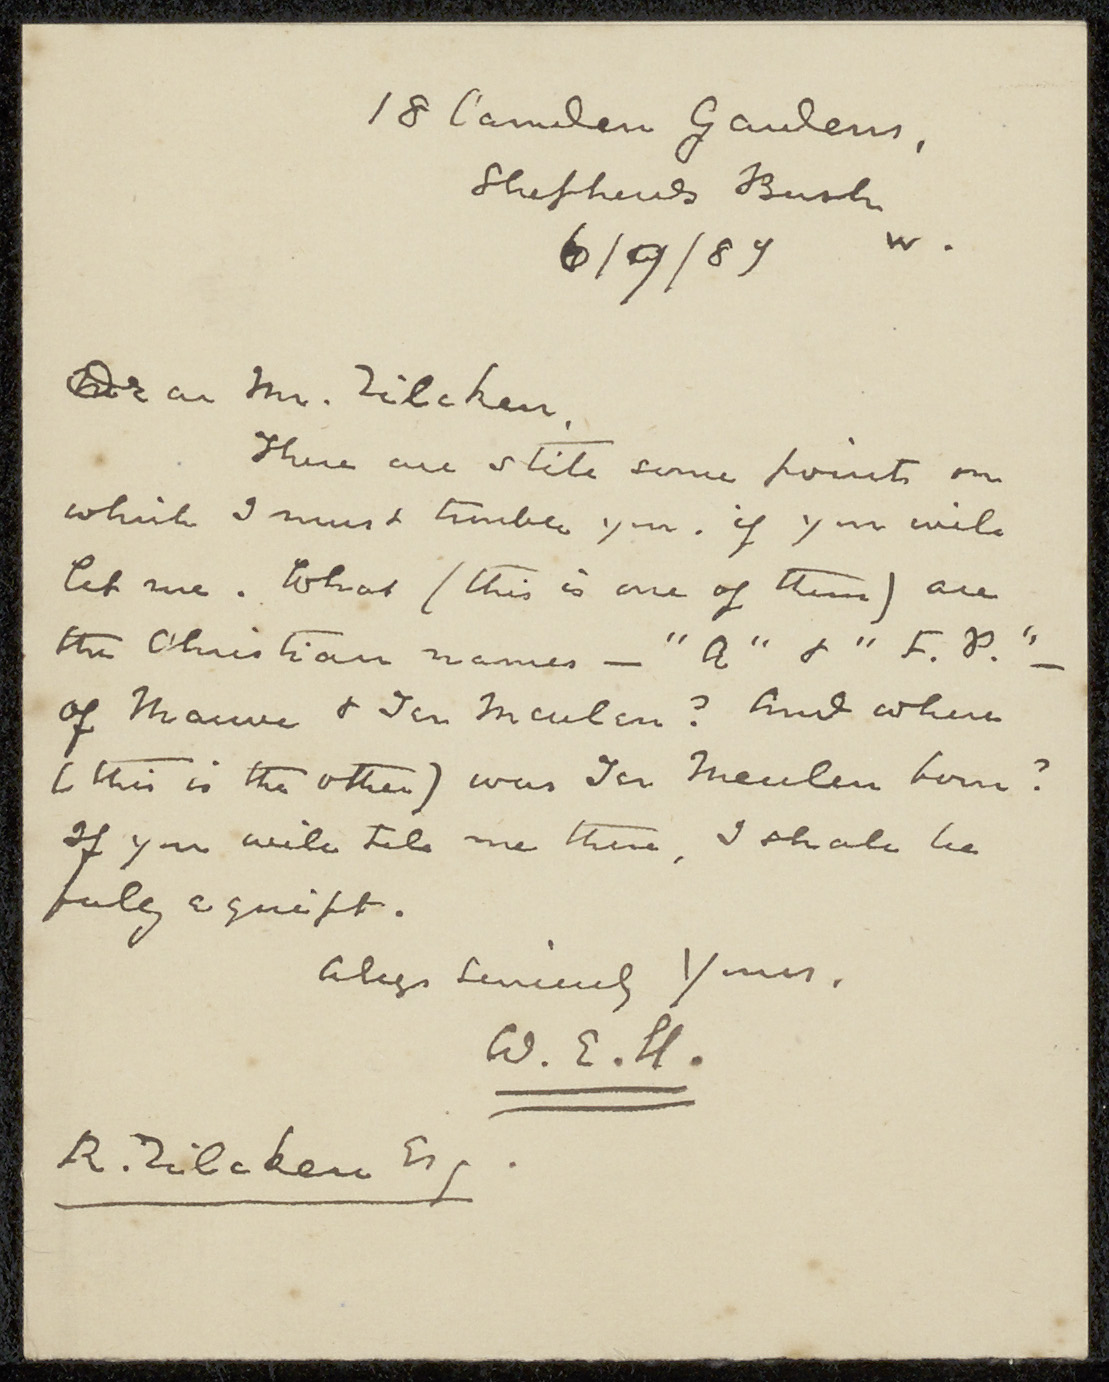 18 Camden Gardens,
Shepherds Bush
W.
6/9/89
Dear Mr. Zilcken,
There are still some points on
which I must trouble you. if you will
let me. What (this is one of them) are
the Christian names — "A" & "F. P." —
of Mauve & Ter Meulen? And where
(this is the other) was Ter Meulen born?
If you will tell me these, I shall be
fully equipt.
Always Sincerely Yours,
W. E. H.
R. Zilcken Esq.